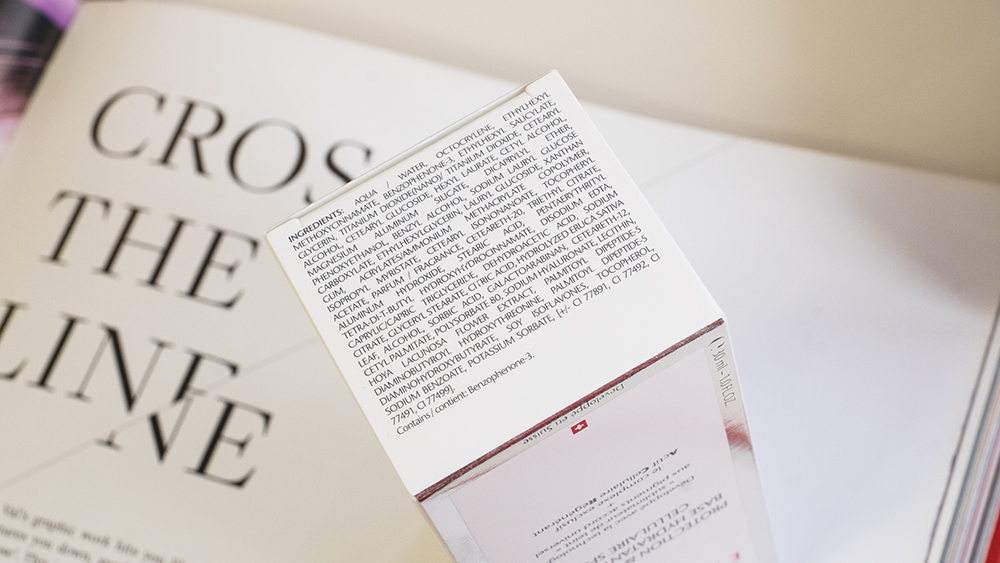 CROS
THE
LINE
INGREDIENTS: AQUA / WATER, OCTOCRYLENE, ETHYLHEXYL
METHOXYCINNAMATE, BENZOPHENONE-3, ETHYLHEXYL SALICYLATE,
GLYCERIN, TITANIUM DIOXIDE(NANO), TITANIUM DIOXIDE, CETEARYL
ALCOHOL, CETEARYL GLUCOSIDE, HEXYL LAURATE, CETYL ALCOHOL,
MAGNESIUM ALUMINUM SILICATE, DICAPRYLYL ETHER,
PHENOXYETHANOL, BENZYL ALCOHOL, SODIUM LAURYL GLUCOSE
CARBOXYLATE, ETHYLHEXYLGLYCERIN, LAURYL GLUCOSIDE, XANTHAN
GUM, ACRYLATES/AMMONIUM METHACRYLATE COPOLYMER,
ISOPROPYL MYRISTATE, CETEARYL ISONONANOATE, TOCOPHERYL
ACETATE, PARFUM / FRAGRANCE, CETEARETH-20, TRIETHYL CITRATE,
ALUMINUM HYDROXIDE, STEARIC ACID, PENTAERYTHRITYL
TETRA-DI-T-BUTYL HYDROXYHYDROCINNAMATE, DISODIUM EDTA,
CAPRYLIC/CAPRIC TRIGLYCERIDE, DEHYDROACETIC ACID, SODIUM
CITRATE, GLYCERYL STEARATE, CITRIC ACID, HYDROLYZED ERUCA SATIVA
LEAF, ALCOHOL, SORBIC ACID, GALACTOARABINAN, CETEARETH-12,
CETYL PALMITATE, POLYSORBATE 80, SODIUM HYALURONATE, LECITHIN,
HOYA LACUNOSA FLOWER EXTRACT, PALMITOYL DIPEPTIDE-5
DIAMINOBUTYROYL HYDROXYTHREONINE, PALMITOYL DIPEPTIDE-5
DIAMINOHYDROXYBUTYRATE, SOY ISOFLAVONES, TOCOPHEROL,
SODIUM BENZOATE, POTASSIUM SORBATE, [+/- CI 77891, CI 77492, CI
77491, CI 77499].
Contains / contient: Benzophenone-3.
30 ml - 1.0 FL.OZ.
Développé en Suisse
Actif Cellulaire Régénérant
le complexe exclusif
+
aux pigments « accord universel
sublimateur de teint »
Développé avec la technolog
CELLULAIRE SP
BASE HYDRATAN
PROTECTION &
graphic work hits you
you down,